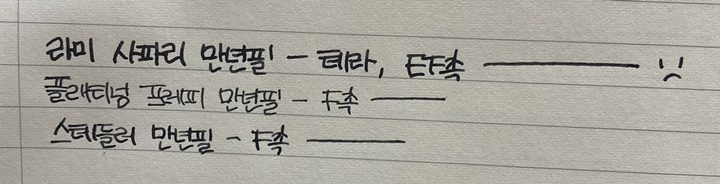 라미 사파리 만년필 - 테라, EF촉
플래티넘 프레피 만년필 - F촉
스테들러 만년필 - F촉